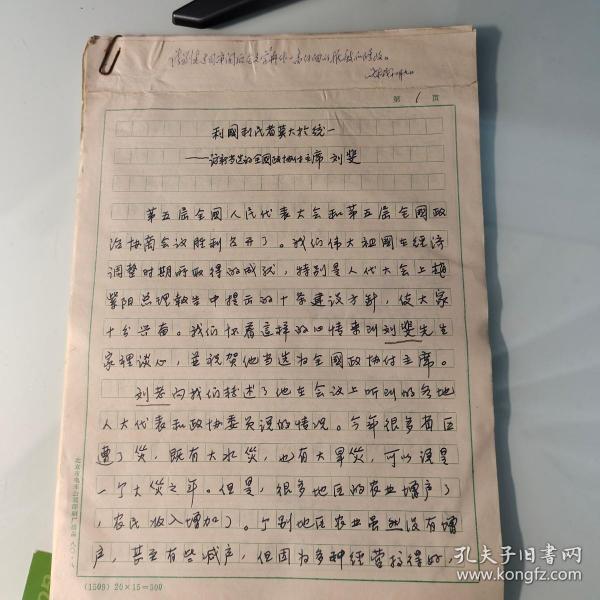 第 1 页
利國利民者莫大於统一
——访新当选的全國政协付主席 刘斐
第五届全國人民代表大会和第五届全國政
治协商会议胜利召开了。我们伟大祖國在经济
调整时期所取得的成就，特别是人代大会上赵
紫阳总理報告中提示的十条建设方針，使大家
十分兴奋。我们怀着这样的心情来到刘斐先生
家裡谈心，並祝贺他当选为全國政协付主席。
刘老向我们转述了他在会议上听到的各地
人大代表和政协委员说的情况。今年很多省区
遭了災，既有大水災，也有大旱災，可以说是
一个大災之年。但是，很多地区的农业增产了
，农民收入增加了。个别地区农业虽然没有增
产，甚至有些减产，但因为多种经营搞得好，
(1509) 20×15=300
孔夫子旧书网
www.kongfz.com